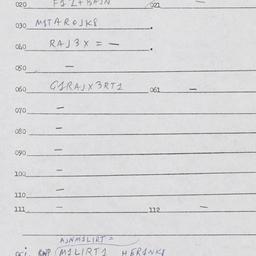 020 F1Z+BAJN 021 —
030 MITAROJK8
040 RAJ3X = —
050 —
060 G1RAJX3RT1 061 —
070 —
080 —
090 —
100 —
110 —
111 — 112 —
AJNM1LIRT =
(M1LIRT1 HERINK8